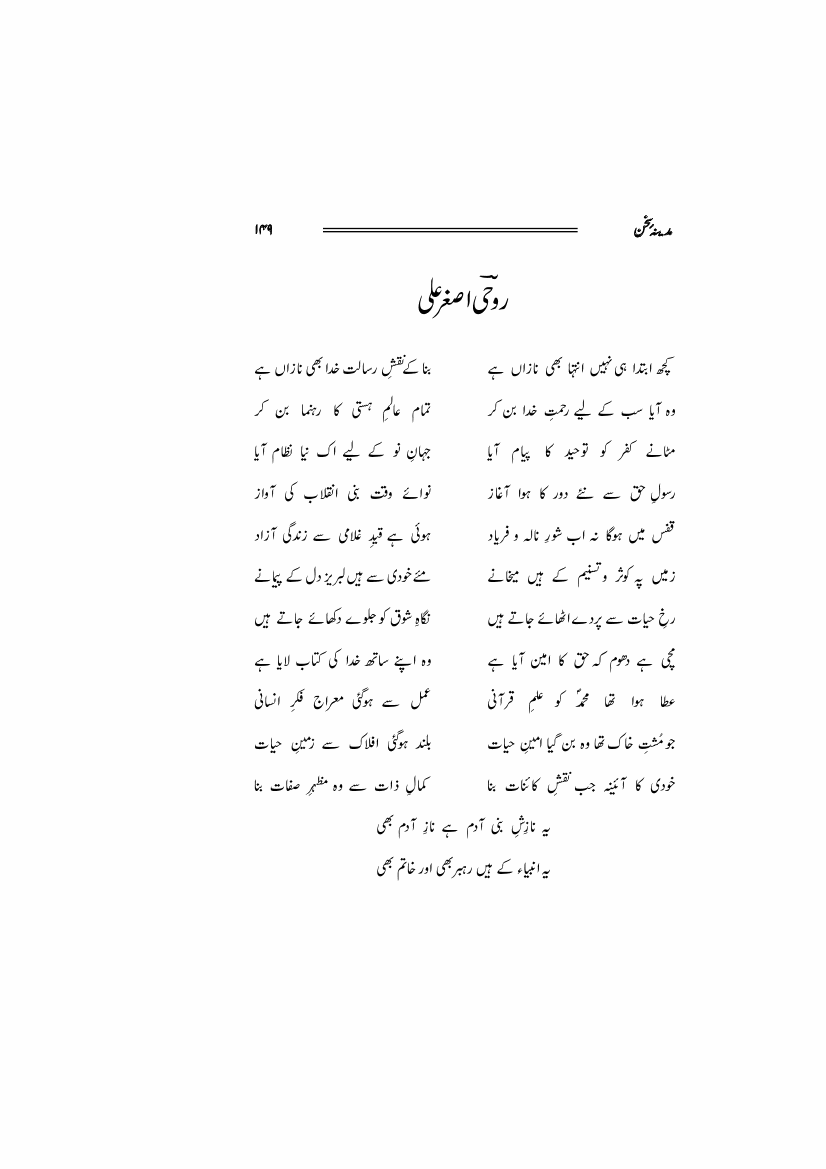 مدینۂ سخن ۱۴۹
روحیؔ اصغر علی
کچھ ابتدا ہی نہیں انتہا بھی نازاں ہے بنا کے نقشِ رسالت خدا بھی نازاں ہے
وہ آیا سب کے لیے رحمتِ خدا بن کر تمام عالمِ ہستی کا رہنما بن کر
مٹانے کفر کو توحید کا پیام آیا جہانِ نو کے لیے اک نیا نظام آیا
رسولِ حق سے نئے دور کا ہوا آغاز نوائے وقت بنی انقلاب کی آواز
قفس میں ہوگا نہ اب شورِ نالہ و فریاد ہوئی ہے قیدِ غلامی سے زندگی آزاد
زمیں پہ کوثر و تسنیم کے ہیں میخانے مئے خودی سے ہیں لبریز دل کے پیمانے
رخِ حیات سے پردے اٹھائے جاتے ہیں نگاہِ شوق کو جلوے دکھائے جاتے ہیں
مچی ہے دھوم کہ حق کا امین آیا ہے وہ اپنے ساتھ خدا کی کتاب لایا ہے
عطا ہوا تھا محمدؐ کو علمِ قرآنی عمل سے ہوگئی معراج فکرِ انسانی
جو مُشتِ خاک تھا وہ بن گیا امینِ حیات بلند ہوگئی افلاک سے زمینِ حیات
خودی کا آئینہ جب نقشِ کائنات بنا کمالِ ذات سے وہ مظہرِ صفات بنا
یہ نازِشِ بنی آدم ہے نازِ آدم بھی
یہ انبیاء کے ہیں رہبر بھی اور خاتم بھی